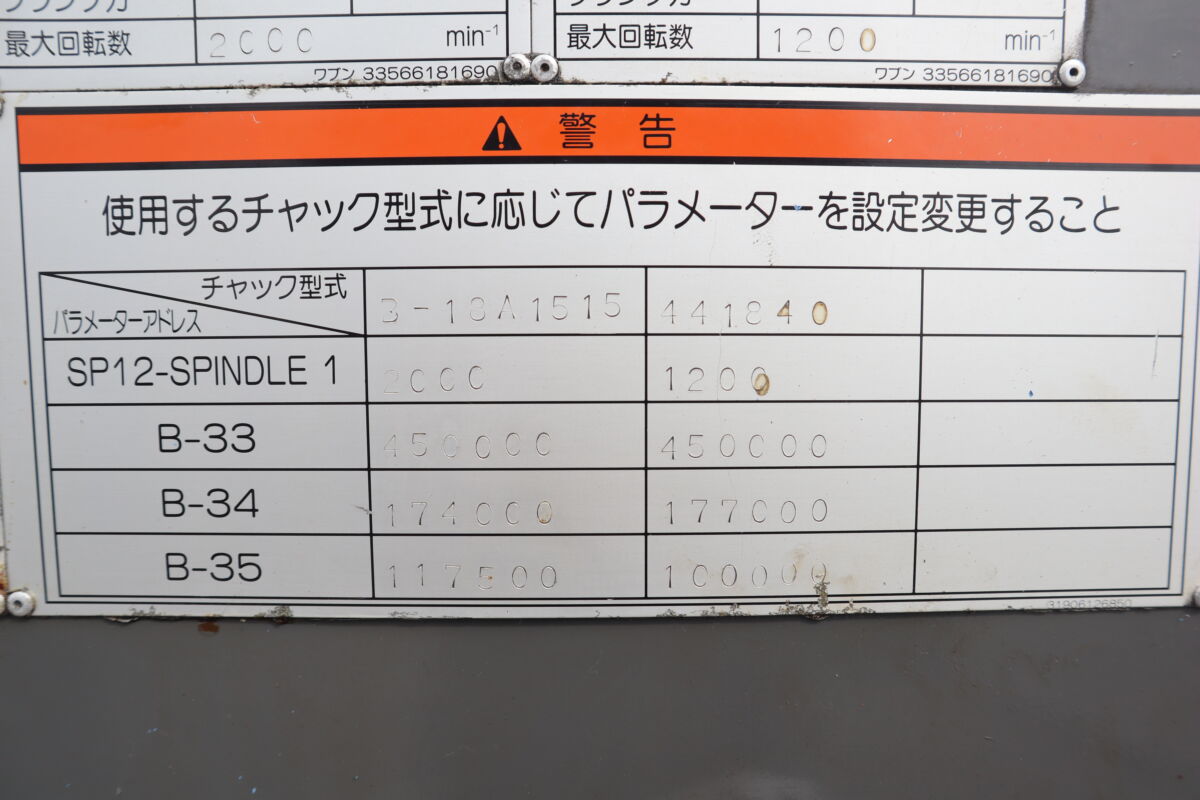 最大回転数 2000 min⁻¹
ワブン 33566181690
最大回転数 1200 min⁻¹
ワブン 33566181690
警告
使用するチャック型式に応じてパラメーターを設定変更すること
チャック型式 B-18A1515 441840
パラメーターアドレス
SP12-SPINDLE 1 2000 1200
B-33 450000 450000
B-34 174000 177000
B-35 117500 100000
31906126850